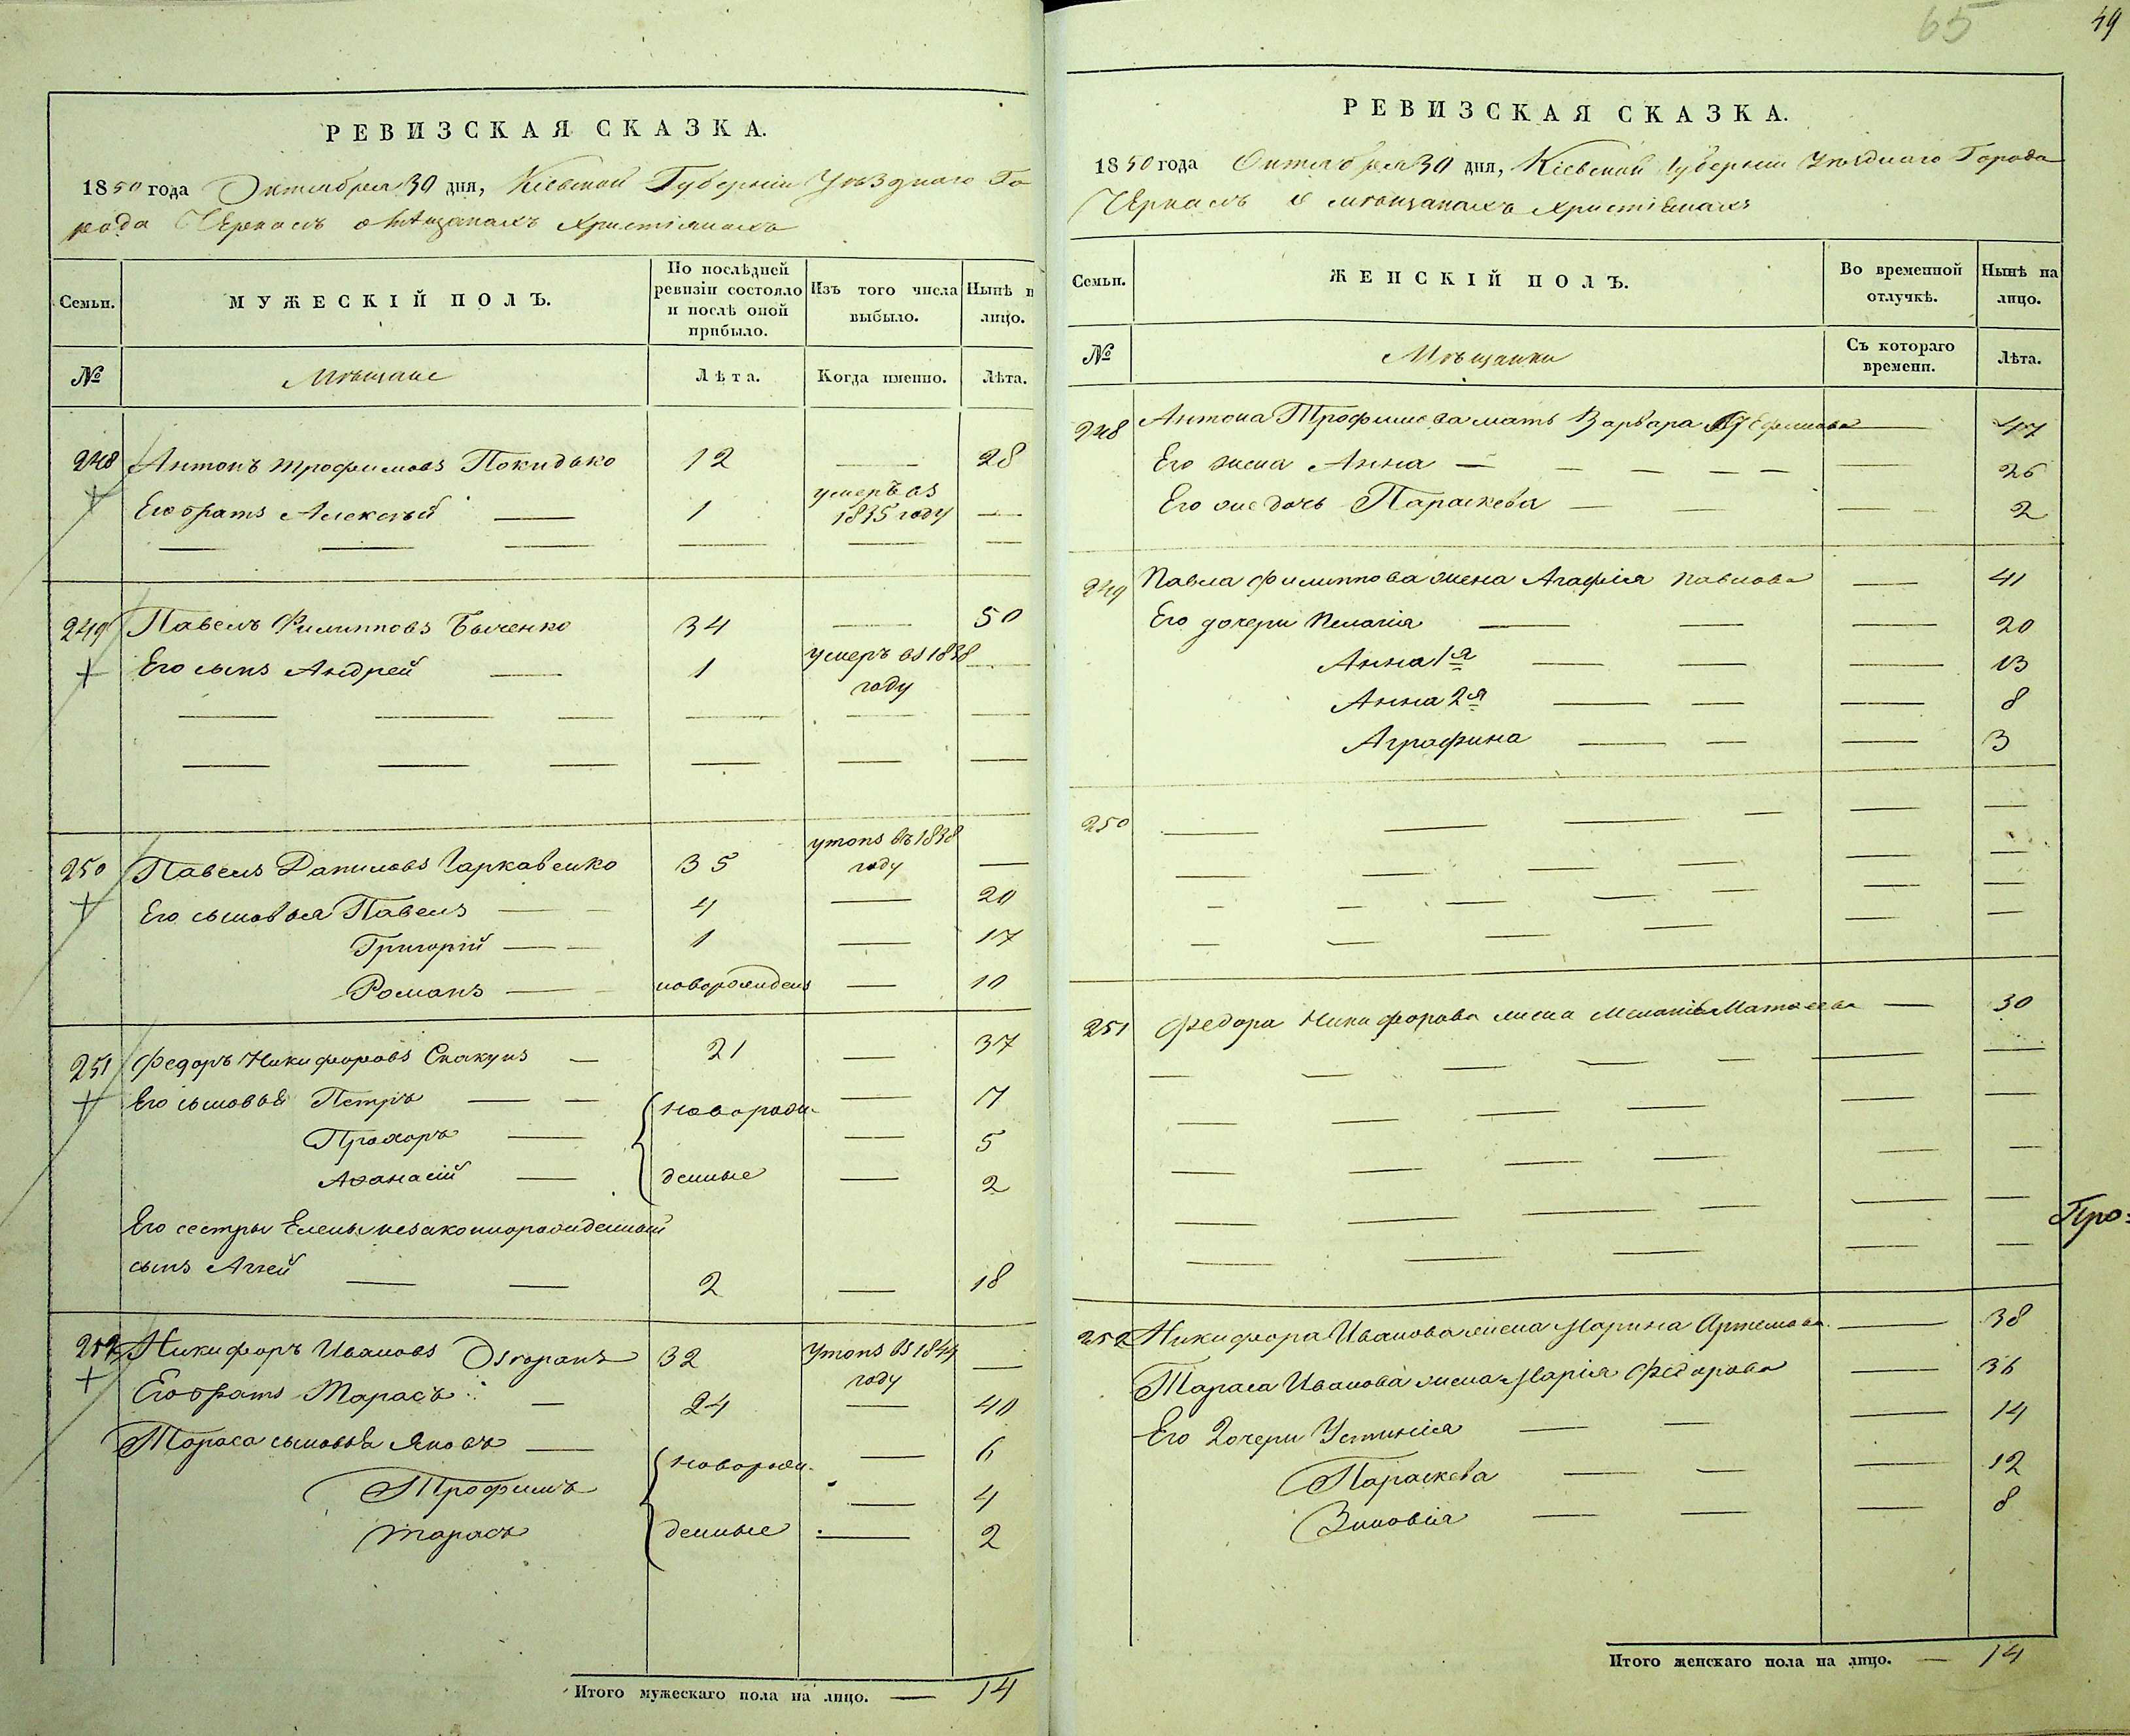 РЕВИЗСКАЯ СКАЗКА.
1850 года Октября 30 дня, Кіевской Губерніи Уѣзднаго Го
рода Черкасъ о мѣщанахъ христіянахъ
Семьи.
МУЖЕСКІЙ ПОЛЪ.
По послѣдней ревизіи состояло и послѣ оной прибыло.
Изъ того числа выбыло.
Нынѣ н лицо.
№
Мѣщане
Лѣта.
Когда именно.
Лѣта.
248 Антонъ Трофимовъ Покидько 12 — 28
Его братъ Алексѣй — 1 умеръ въ 1835 году —
249 Павелъ Филипповъ Быченко 34 — 50
Его сынъ Андрей — 1 умеръ въ 1838 году —
250 Павелъ Даниловъ Гаркавенко 35 утопъ въ 1838 году —
Его сыновья Павелъ — 4 — 20
Григорій — 1 — 17
Романъ — новорожденъ — 10
251 Федоръ Никифоровъ Скакунъ — 21 — 37
Его сыновья Петръ — новорож- — 7
Прохоръ — — 5
Аѳанасій — денные — 2
Его сестры Елены незаконнорожденный
сынъ Аггей — 2 — 18
252 Никифоръ Ивановъ 32 утопъ въ 1844 году —
Его братъ Тарасъ — 24 — 40
Тараса сыновья Яковъ — новорож- — 6
Трофимъ — 4
Тарасъ денные — 2
Итого мужескаго пола на лицо. — 14
65
49
РЕВИЗСКАЯ СКАЗКА.
1850 года Октября 30 дня, Кіевской Губерніи Уѣзднаго Города
Черкасъ о мѣщанахъ христіянахъ
Семьи.
ЖЕНСКІЙ ПОЛЪ.
Во временной отлучкѣ.
Нынѣ на лицо.
№
Мѣщанки
Съ котораго времени.
Лѣта.
248 Антона Трофимова мать Варвара Ефимова — 47
Его жена Анна — — 26
Его же дочь Параскева — — 2
249 Павла Филиппова жена Агафія Павлова — 41
Его дочери Пелагія — — 20
Анна 1я — — 13
Анна 2я — — 8
Аграфина — — 3
250 — — —
251 Федора Никифорова жена Меланія Матвеева — 30
Про=
252 Никифора Иванова жена Марина Артемова — 38
Тараса Иванова жена Марія Федорова — 36
Его дочери Устинія — — 14
Параскева — — 12
Зиновія — — 8
Итого женскаго пола на лицо. — 14